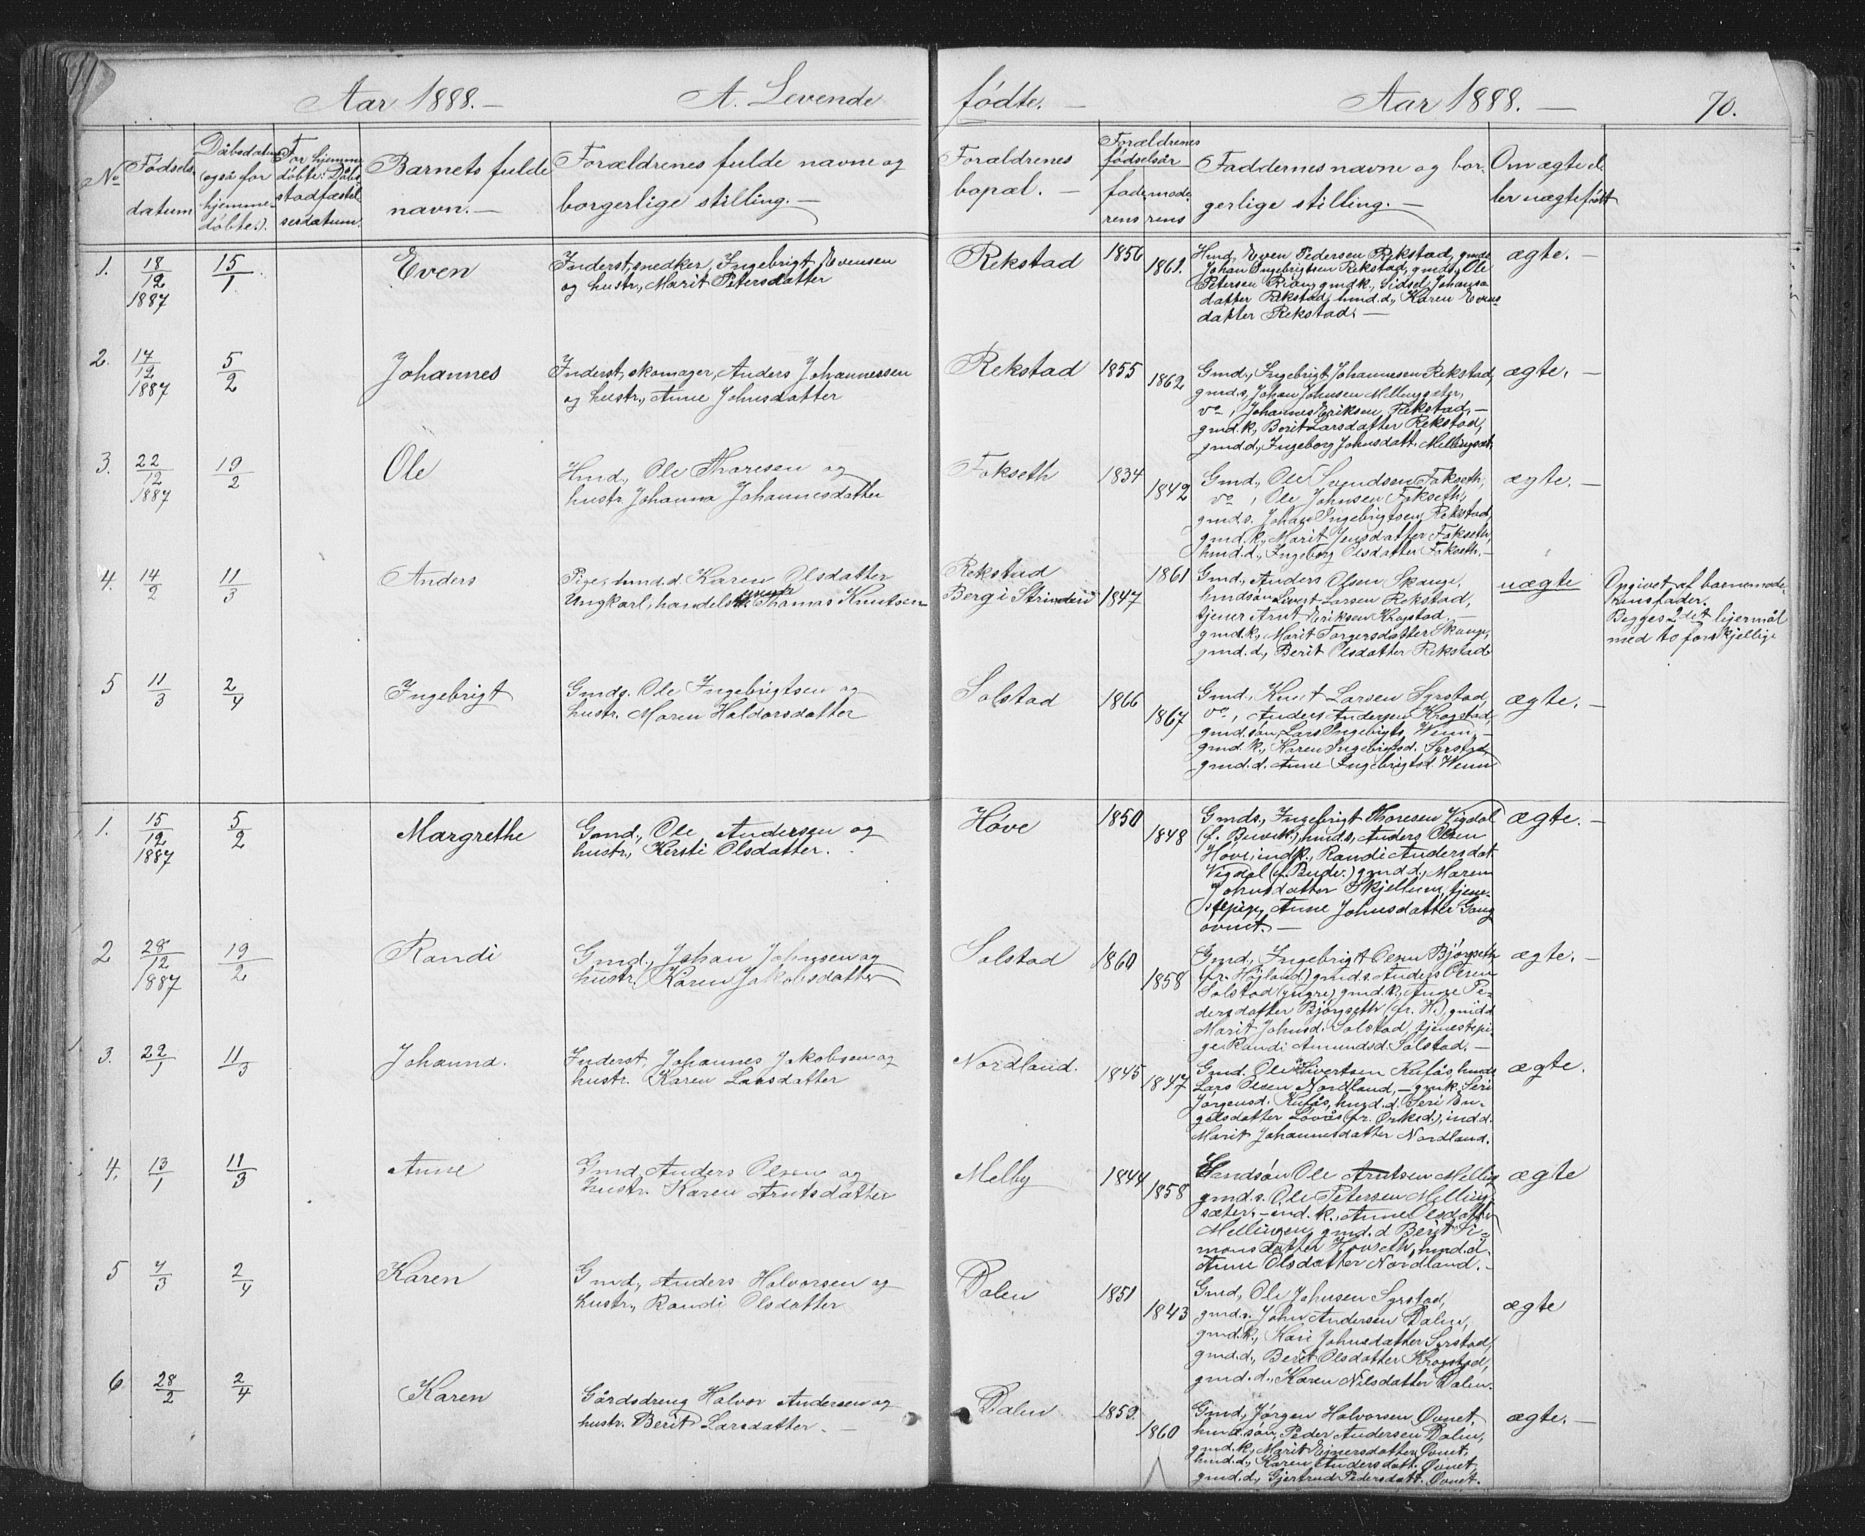 Aar 1888. — A. Levende fødte. — Aar 1888. — 70.
No
Fødsels
datum
Dåbsdatum
(også for
hjemme-
døbte).
For hjemme
døbte: Dåbs
stadfæstel
sesdatum.
Barnets fulde
navn. —
Forældrenes fulde navne og
borgerlige stilling. —
Forældrenes
bopæl. —
Forældrenes
fødselsår
fade
rens
mode
rens
Faddernes navne og bor-
gerlige stilling. —
Om ægte el
ler uægte født
1. 18/12 1887 15/1 Even
Inderst, snedker, Ingebrigt Evensen
og hustr., Marit Petersdatter
Rekstad 1856 1861.
Hmd, Even Pedersen Rekstad, gmds
Johan Ingebrigtsen Rekstad, gmds, Ole
Petersen gmdk., Sidsel Johans
datter Rekstad, hmd.d., Karen Evens
datter Rekstad. —
ægte. —
2. 17/12 1887 5/2 Johannes
Inderst, skomager, Anders Johannessen
og hustr., Anne Johnsdatter
Rekstad 1855 1862
Gmd., Ingebrigt Johannesen Rekstad,
gmds, Johan Johnsen
vo, Johannes Eriksen Rekstad, —
gmd.k., Berit Larsdatter Rekstad,
gmd.d., Ingeborg Johnsdatt. Mellingsæt.
ægte. —
3. 22/12 1887 19/2 Ole
Hmd., Ole Thoresen og
hustr. Johanna Johannesdatter
Fokseth 1834 1842
Gmd., Ole Svendsen Fokseth,
vo, Ole Johnsen Fokseth,
gmd.s. Johan Ingebrigtsen Rekstad,
gmd.k., Marit Jensdatter Fokseth,
hmd.d., Ingeborg Olsdatter Fokseth. —
ægte. —
4. 14/2 11/3 Anders
Pige, hmd.d. Karen Olsdatter
Ungkarl, handels Thomas Knutsen
Rekstad
Berg i Strinden 1847 1861
Gmd., Anders Olsen Skauge,
hmdsøn Larsen Rekstad,
tjener Arnt Eriksen Krogstad. —
gmd.k., Marit Torgersdatter Skauge,
gmd.d., Berit Olsdatter Rekstad
uægte
Opgivet af barnemode
ren
Begges 2det lejermål
med to forskjellige
5 11/3 2/4 Ingebrigt
Gmds. Ole Ingebrigtsen og
hustr. Maren Haldorsdatter
Solstad 1866 1867
Gmd. Knut Larsen Syrstad,
vo, Anders Andersen Krogstad,
gmd.søn, Lars Ingebrigts. Wenn, —
gmd.k., Karen Ingebrigtsd. Syrstad,
gmd.d. Anne Ingebrigtsd. Wenn
ægte. —
1. 15/12 1887 5/2 Margrethe
Gmd., Ole Andersen og
hustr., Kersti Olsdatter.
Hove 1850 1848
Gmds., Ingebrigt Thoresen Vigdal
hmd.s, Anders Olsen
Hove, indk., Randi Andersdat.
Vigdal gmd.d., Maren
Johnsdatter Skjellum, tjene-
stepige, Anne Johnsdatter Gaug
ovnet. —
ægte. —
2 28/12 1887 19/2 Randi
Gmd., Johan Johnsen og
hustr. Karen Jakobsdatter
Solstad 1860 1858
Gmd., Ingebrigt Olsen Bjørgseth
(fr. Højland) gmd.s. Anders Olsen
Solstad (yngre), gmd.k., Anne Pe-
dersdatter Bjørgseth (fr. H.), gmd.d
Marit Johnsd. Solstad, tjenestepi-
ge Randi Amundsd. Solstad. —
ægte. —
3. 22/1 11/3 Johanna.
Inderst, Johannes Jakobsen og
hustr. Karen Larsdatter
Nordland. 1845 1847
Gmd. Ole Sivertsen Kufås, hmds
Lars Olsen Nordland, — gmk. Seri
Jørgensd. Kufås, hmd.d. Seri En-
gelsdatter Løvås (fr. Orked.), ind.d.
Marit Johannesdatter Nordland.
ægte.
4. 13/1 11/3 Anne
Gmd, Anders Olsen og
hustr. Karen Arntsdatter
Melby 1844 1858
Ole Arntsen Melling
gmd.s. Ole Petersen Melling-
sæter. — ind.k., Anne Olsdatter
Mellingen, gmd.d Berit Si-
monsdatter Hovseth, hmd.d.
Anne Olsdatter Nordland. —
ægte
5 7/3 2/4 Karen
Gmd., Anders Halvorsen og
hustr., Randi Olsdatter
Dalen 1851 1843
Gmd, Ole Johnsen Syrstad,
gmd.s. John Andersen Dalen,
gmd.k., Kari Johnsdatter Syrstad,
gmd.d., Berit Olsdatter Krogstad,
gmd.d., Karen Nilsdatter Dalen.
ægte
6 28/2 2/4 Karen
Gårdsdreng Halvor Andersen og
hustr. Berit Larsdatter. —
Dalen 1859. 1860
Gmd., Jørgen Halvorsen Ovnet,
hmd.søn, Peder Andersen Dalen,
gmd.k., Marit Ejnersdatter Ovnet,
hmd.d., Karen Andersdatt. Ovnet,
gmd.d., Gjertrud Pedersdatt. Ovnet.
ægte. —